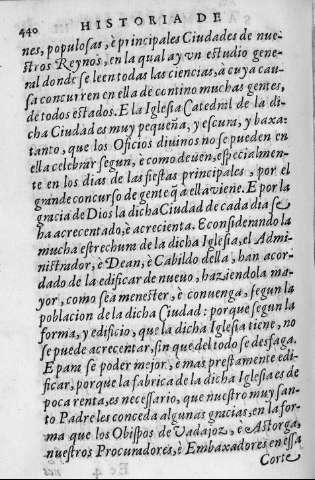 440 HISTORIA DE
nes, populosas, è principales Ciudades de nue-
stros Reynos, en la qual ay vn estudio gene-
ral donde se leen todas las ciencias, a cuya cau-
sa concurren en ella de contino muchas gentes,
de todos estados. E la Iglesia Catedral de la di-
cha Ciudad es muy pequeña, y escura, y baxa:
tanto, que los Oficios diuinos no se pueden en
ella celebrar segun, è como deuen, especialmen-
te en los dias de las fiestas principales, por el
grande concurso de gente q̃ a ella viene. E por la
gracia de Dios la dicha Ciudad de cada dia se
ha acrecentado, è acrecienta. E considerando la
mucha estrechura de la dicha Iglesia, el Admi-
nistrador, è Dean, è Cabildo della, han acor-
dado de la edificar de nueuo, haziendola ma-
yor, como sea menester, è conuenga, segun la
poblacion de la dicha Ciudad: porque segun la
forma, y edificio, que la dicha Iglesia tiene, no
se puede acrecentar, sin que del todo se desfaga.
E para se poder mejor, è mas prestamente edi-
ficar, porque la fabrica de la dicha Iglesia es de
poca renta, es necessario, que nuestro muy san-
to Padre les conceda algunas gracias, en la for-
ma que los Obispos de Vadajoz, è Astorga,
nuestros Procuradores, è Embaxadores en essa
Corte